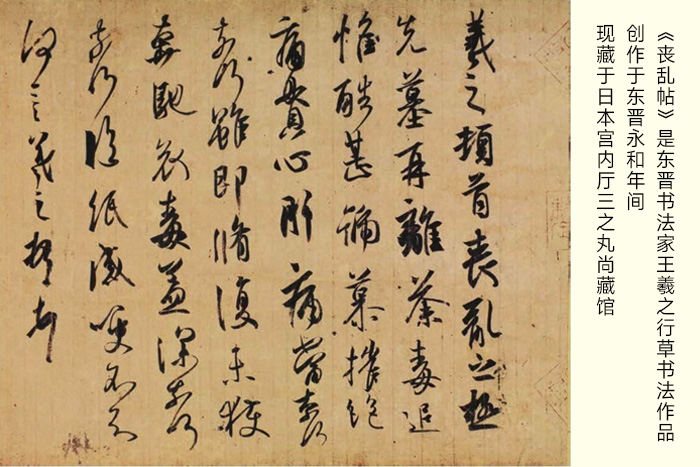 羲之頓首喪亂之極
先墓再離荼毒追
惟酷甚號慕摧絕
痛貫心肝痛當奈何
奈何雖即脩復未獲
奔馳哀毒益深奈何
奈何臨紙感哽不知
何言羲之頓首
《丧乱帖》是东晋书法家王羲之行草书法作品
创作于东晋永和年间
现藏于日本宫内厅三之丸尚藏馆